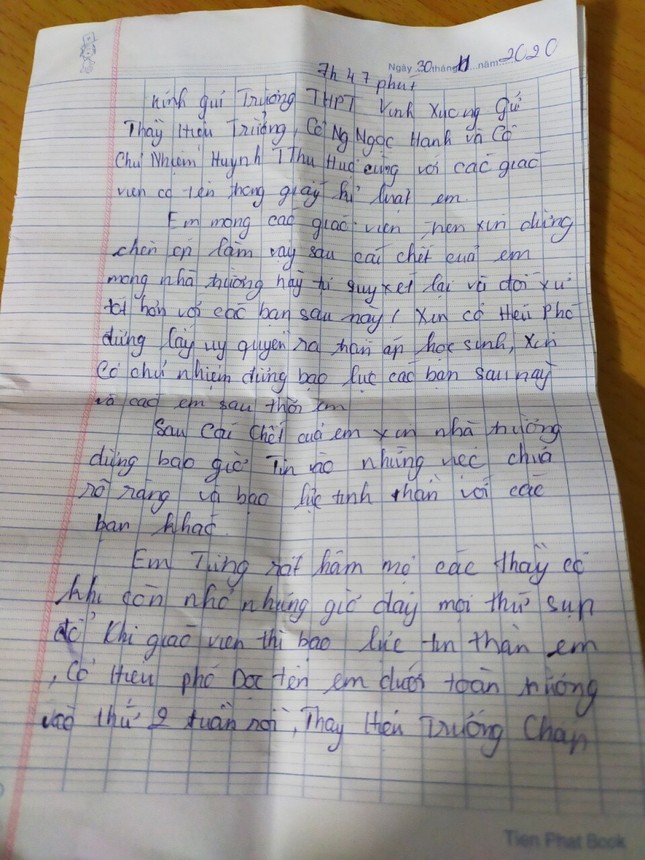 Ngày 30 tháng 11 năm 2020
7h 47 phut
Kính gửi Trường THPT Vĩnh Xương Gửi
Thầy Hiệu Trưởng, Cô Ng Ngọc Hạnh và Cô
Chủ Nhiệm Huỳnh T Thu Huệ cùng với các giáo
viên có tên trong giấy kỉ luật em.
Em mong các giáo viên trên xin đừng
chèn ép làm vậy sau cái chết của em
mong nhà trường hãy suy xét lại và đối xử
tốt hơn với các bạn sau này! Xin cô Hiệu Phó
đừng lấy uy quyền ra trấn áp học sinh, xin
Cô chủ nhiệm đừng bạo lực các bạn sau này
và các em sau thời em
Sau Cái Chết của em xin nhà trường
đừng bao giờ Tin vào những việc chưa
rõ ràng và bạo lực tinh thần với các
bạn khác.
Em Từng rất hâm mộ các thầy cô
khi còn nhỏ nhưng giờ đây mọi thứ sụp
đổ Khi giáo viên thì bao lực tin thần em
, Cô Hiệu phó Đọc tên em dưới toàn trường
vào thứ 2 tuần rồi, Thầy Hiệu Trưởng Chấp
Tien Phat Book